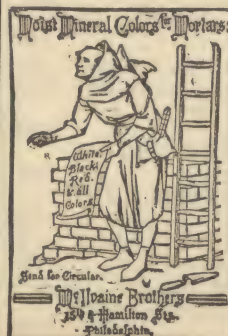 Moist Mineral Colors for Mortars:
White.
Black.
Red.
& all
Colors.
Send for Circular.
McIlvaine Brothers
Hamilton Sts.
Philadelphia.